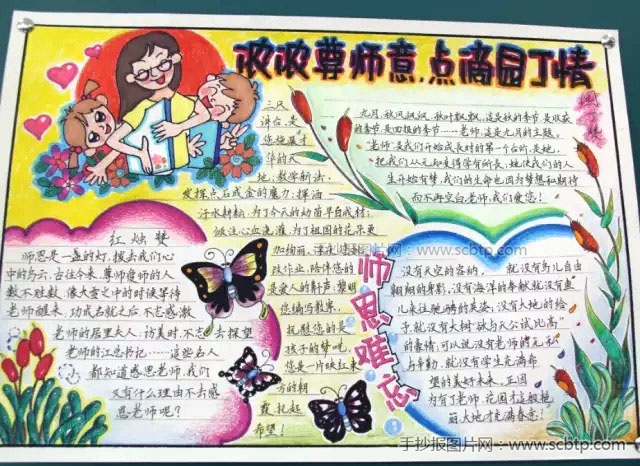 浓浓尊师意,点滴园丁情
园丁赞
三尺
讲台,是
您施展才
华的天
地:教学新法,
发挥点石成金的魔力;挥洒
汗水耕耘,为了今天的幼苗早成材;
做这心血浇灌,为了祖国的花朵更
九月,秋风飒飒,秋叶飘飘,这是秋的季节,是收获
的季节,是回报的季节……老师,这是九月的主题。
"老师"是我们开始成长时的第一个台阶,是她
把我们从无知变得学有所长,她使我们的人
生开始有梦,我们的生命也因为梦想和期待
而不再空白,老师,我们爱您!
红烛赞
师恩是一盏的灯,拨去我们心
中的乌云,古往今来,尊师爱师的人
数不胜数,像大雪之中的时候等待
老师醒来,功成名就之后不忘感激
老师的居里夫人;访美时,不忘去探望
老师的江总书记……这些名人
都知道感恩老师,我们
又有什么理由不去感
恩老师呢?
批改作业,陪伴您的
是家人的鼾声;黎明
您编写教案,
抚慰您的是
孩子的梦呓。
您是一片映红东
方的朝
霞,托起
希望!
师恩难忘
没有天空的容纳,就没有鸟儿自由
翱翔的身影;没有海洋的奉献,就没有鱼
儿来往驰骋的英姿;没有大地的给
予,就没有大树"欲与天公试比高"
的豪情;可以说没有老师的无私
与辛勤,就没有学生充满希
望的美好未来,正因
为有了老师,花园才这般艳
丽,大地才充满春意!
手抄报图片网:www.scbtp.com
手抄报图片网:www.scbtp.com